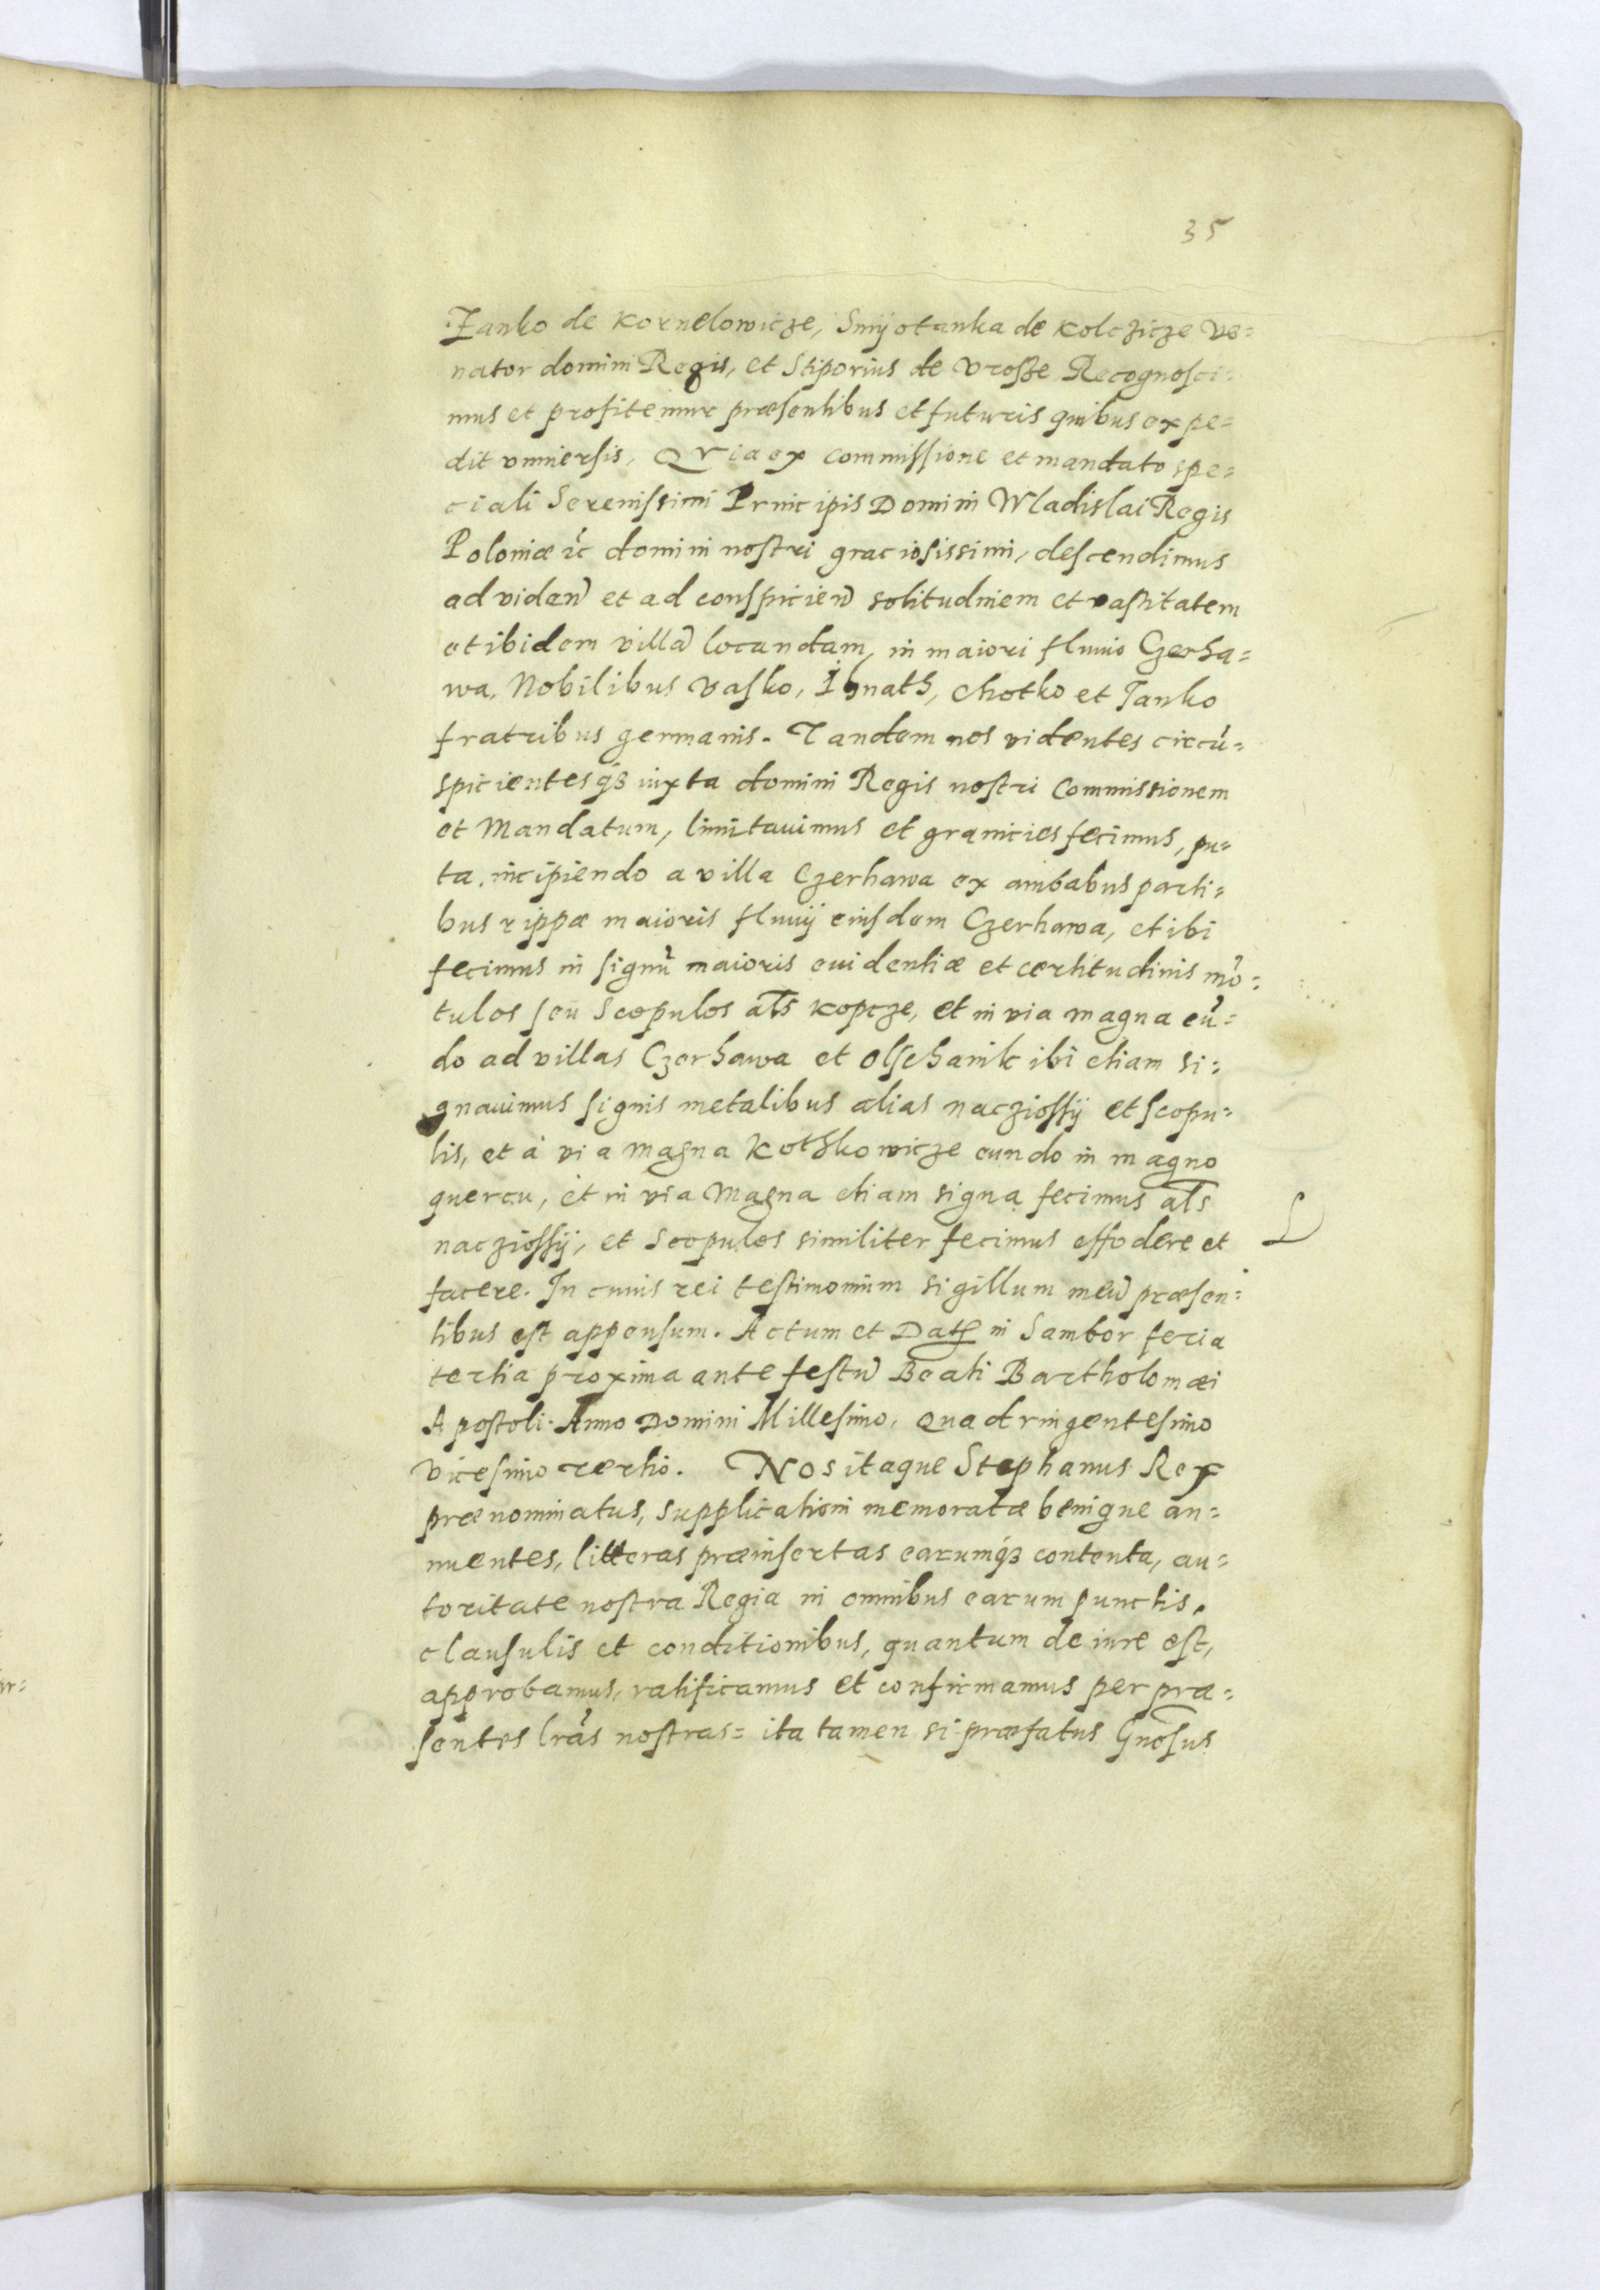 35
Zanko de Kornelowicze, Smyotanka de Kolczicze ve=
nator domini Regis, et Stiporius de Vrosze Recognosci=
mus et profitemur præsentibus et futuris quibus expe=
dit vniuersis, Qvia ex commissione et mandato spe=
ciali Serenissimi Principis Domini Wladislai Regis
Poloniæ ꝛc̃ domini nostri graciosissimi, descendimus
ad viden̄ et ad conspicien̄ solitudinem et vastitatem
et ibidem villā locandam, in maiori fluuio Czerha=
wa, Nobilibus Vasko, Ihnath, Chotko et Janko
fratribus germanis. Tandem nos videntes circū=
spicientesq̃ꝫ iuxta domini Regis nostri Commissionem
et Mandatum, limitauimus et granicies fecimus, pu=
ta, incipiendo a villa Czerhawa ex ambabus parti=
bus rippæ maioris fluuij eiusdem Czerhawa, et ibi
fecimus in signū maioris euidentiæ et certitudinis mō=
tulos seu Scopulos al̄s Kopcze, et in via magna eū=
do ad villas Czerhawa et Olschanik ibi etiam si=
gnauimus signis metalibus alias nacziossy et scopu=
lis, et à via magna Kothkowicze eundo in magno
quercu, et in via magna etiam signa fecimus al̄s
nacziossy, et Scopulos similiter fecimus effodere et
facere. In cuius rei testimonium sigillum meū præsen=
tibus est appensum. Actum et Dat̄ in Sambor feria
tertia proxima ante festū Beati Bartholomæi
Apostoli. Anno Domini Millesimo, Quadringentesimo
vicesimo tertio. Nos itaque Stephanus Rex
præ nominatus, supplicationi memoratæ benigne an=
nuentes, litteras præinsertas earumq̃ꝫ contenta, au=
toritate nostra Regia in omnibus earum punctis,
clausulis et conditionibus, quantum de iure est,
approbamus, ratificamus et confirmamus per præ=
sentes lrās nostras= ita tamen si præfatus Gnōsus